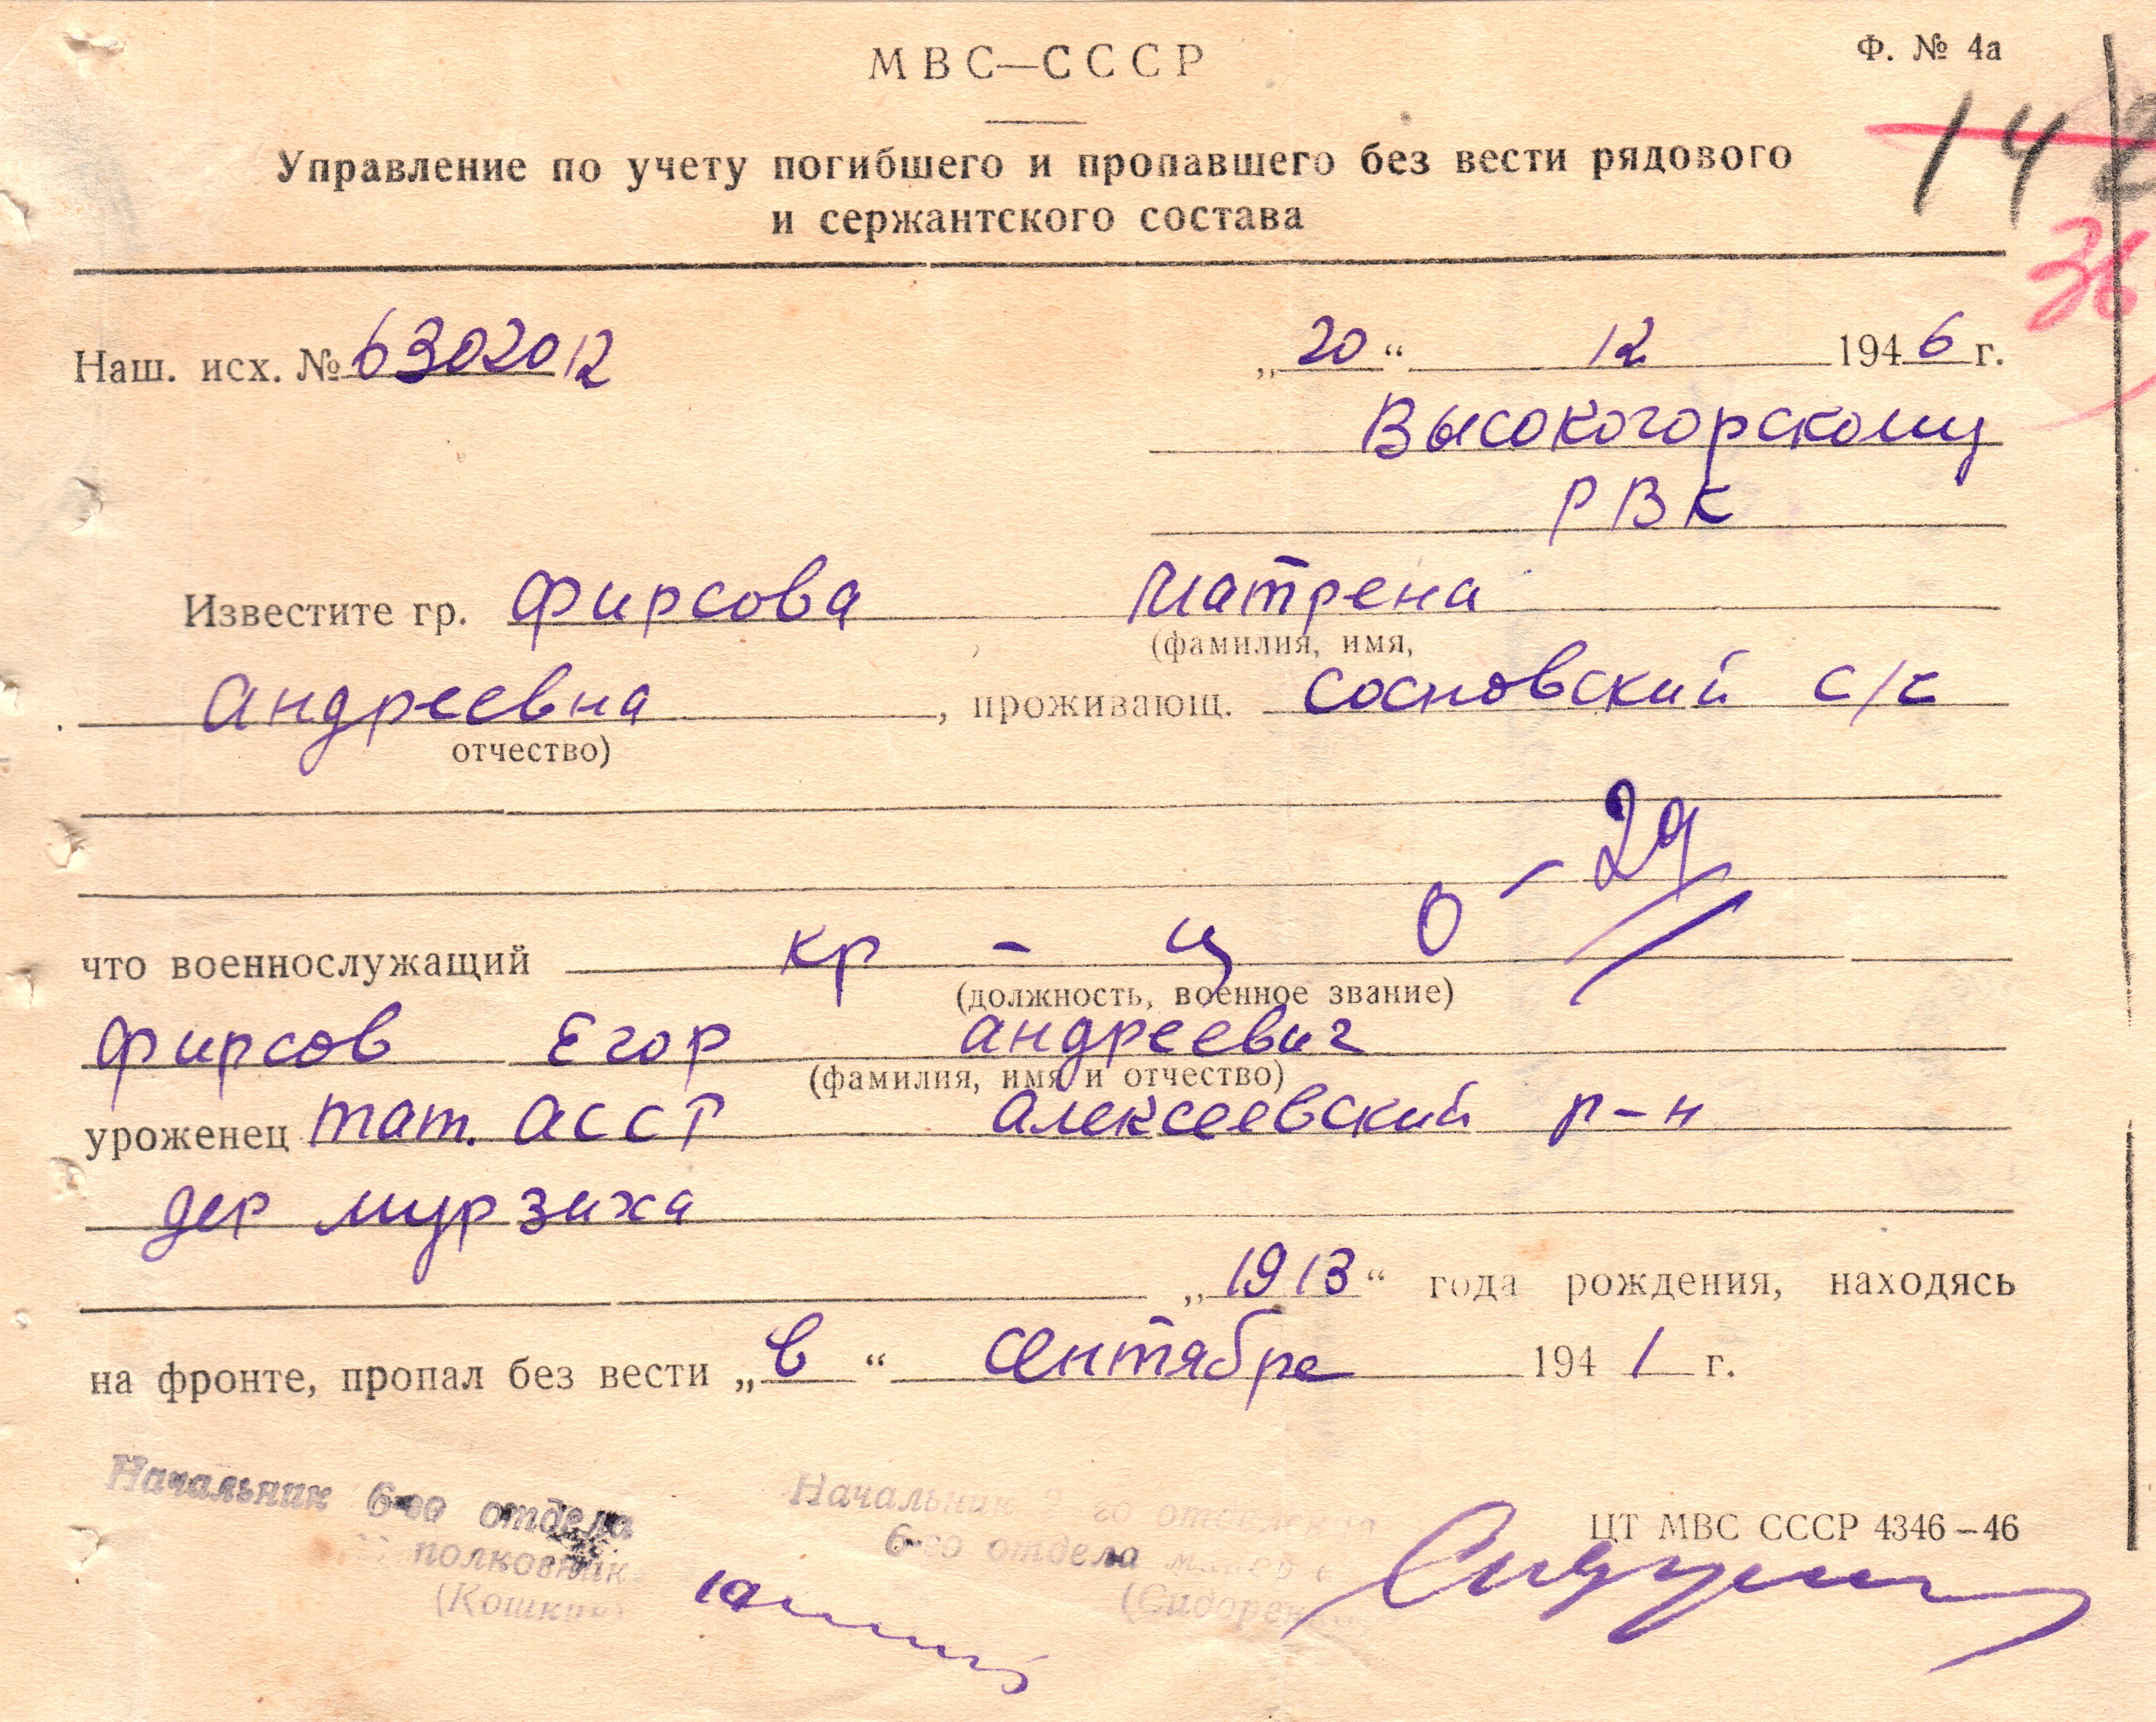 МВС—СССР
Ф. № 4а
14
36
Управление по учету погибшего и пропавшего без вести рядового
и сержантского состава
Наш. исх. № 6302012
„20“ 12 1946 г.
Высокогорскому
РВК
Известите гр. Фирсова Матрена
(фамилия, имя,
Андреевна, проживающ. Сосновский с/с
отчество)
0 - 29
что военнослужащий кр - ц
(должность, военное звание)
Фирсов Егор Андреевич
(фамилия, имя и отчество)
уроженец Тат. АССР Алексеевский р-н
дер Мурзиха
„1913“ года рождения, находясь
на фронте, пропал без вести „в“ сентябре 1941 г.
Начальник 6-го отдела
полковник
(Кошкин)
Начальник го отделения
6-го отдела
(Сидоренко)
ЦТ МВС СССР 4346–46